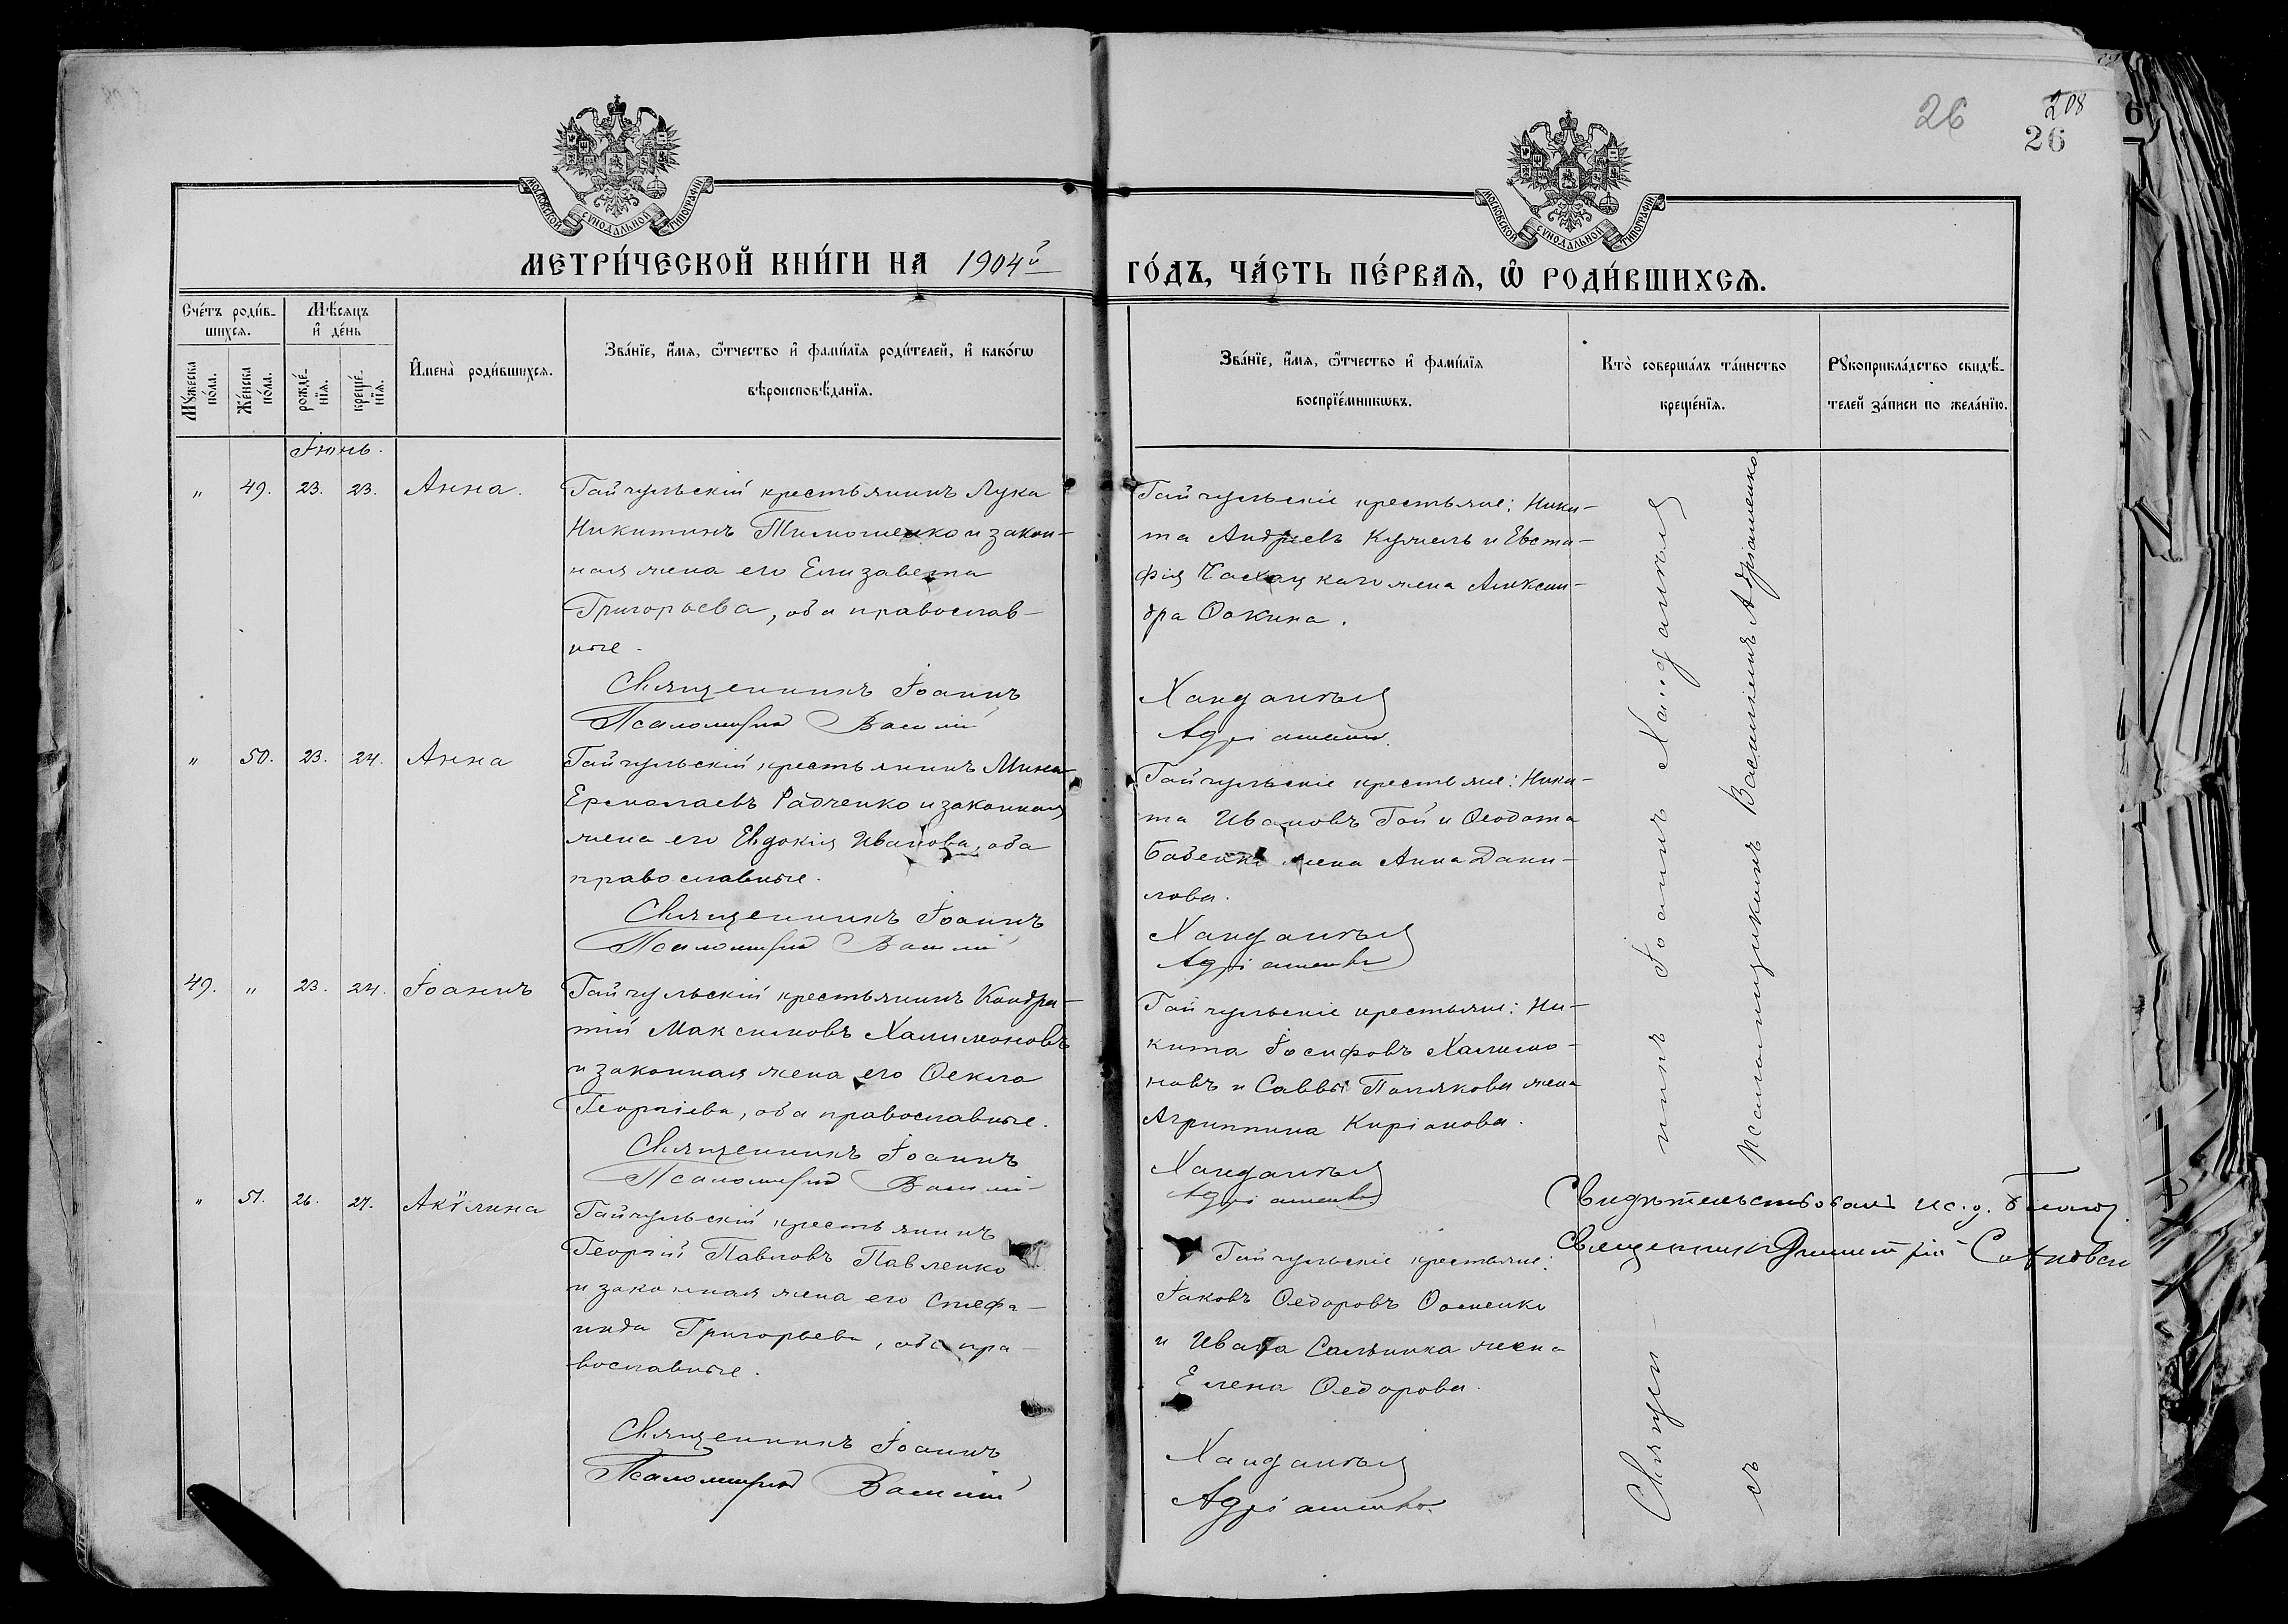 26
208
26
МОСКОВСКОЙ СѴНОДАЛЬНОЙ ТИПОГРАФІИ
МОСКОВСКОЙ СѴНОДАЛЬНОЙ ТИПОГРАФІИ
МЕТРИ́ЧЕСКОЙ КНИ́ГИ НА 1904й
ГО́ДЪ, ЧА́СТЬ ПЕ́РВАѦ, Ѡ҆ РОДИ́ВШИХСѦ.
Сче́тъ роди́в-
шихсѧ.
Мѣ́сѧцъ
и҆ де́нь
Мꙋ́жеска
по́ла.
Же́нска
по́ла.
рожде́-
нїѧ.
креще́-
нїѧ.
И҆мена̀ роди́вшихсѧ.
Зва́нїе, и҆́мѧ, ѻ҆́тчество и҆ фами́лїѧ роди́телей, и҆ како́гѡ
вѣроисповѣ́данїѧ.
Зва́нїе, и҆́мѧ, ѻ҆́тчество и҆ фами́лїѧ
воспрїе́мникѡвъ.
Кто̀ соверша́лъ та́инство
креще́нїѧ.
Рꙋкоприкла́дство свидѣ́-
телей за́писи по жела́нїю.
Іюнь.
" 49. 23. 23. Анна.
Гайчульскій крестьянинъ Лука
Никитинъ Тимошенко и закон-
ная жена его Елизавета
Григорьева, оба православ-
ные.
Священникъ Іоаннъ
Псаломщикъ Василій
Гайчульскіе крестьяне: Ники-
та Андреевъ Кужель и Евста-
фія жена Алексан-
дра Ѳокина.
Хандалѣевъ
Адріашенко
" 50. 23. 24. Анна
Гайчульскій крестьянинъ Мина
Ермолаевъ Радченко и законная
жена его Евдокія Иванова, оба
православные.
Священникъ Іоаннъ
Псаломщикъ Василій
Гайчульскіе крестьяне: Ники-
та Ивановъ Гой и Ѳеодота
Бабенко жена Анна Дани-
лова.
Адріашенко
49. " 23. 24. Іоаннъ
Гайчульскій крестьянинъ Кондра-
тій Максимовъ Халимоновъ
и законная жена его Ѳекла
Георгіева, оба православные.
Священникъ Іоаннъ
Псаломщикъ Василій
Гайчульскіе крестьяне: Ни-
кита Іосифовъ Халимо-
новъ и Саввы Полякова жена
Агриппина Киріанова.
Адріашенко
" 51. 26. 27. Акѵлина
Гайчульскій крестьянинъ
Георгій Павловъ Павленко
и законная жена его Стефа-
нида Григорьева, оба пра-
вославные.
Священникъ Іоаннъ
Псаломщикъ Василій
Гайчульскіе крестьяне:
Іаковъ Ѳедоровъ Ѳоменко
и Ивана Сальника жена
Елена Ѳедорова.
Адріашенко
Священ-
никъ Іоаннъ
съ
псаломщикомъ Василіемъ Адріашенко
Свидѣтельствовалъ ис. д.
Священникъ Димитрій